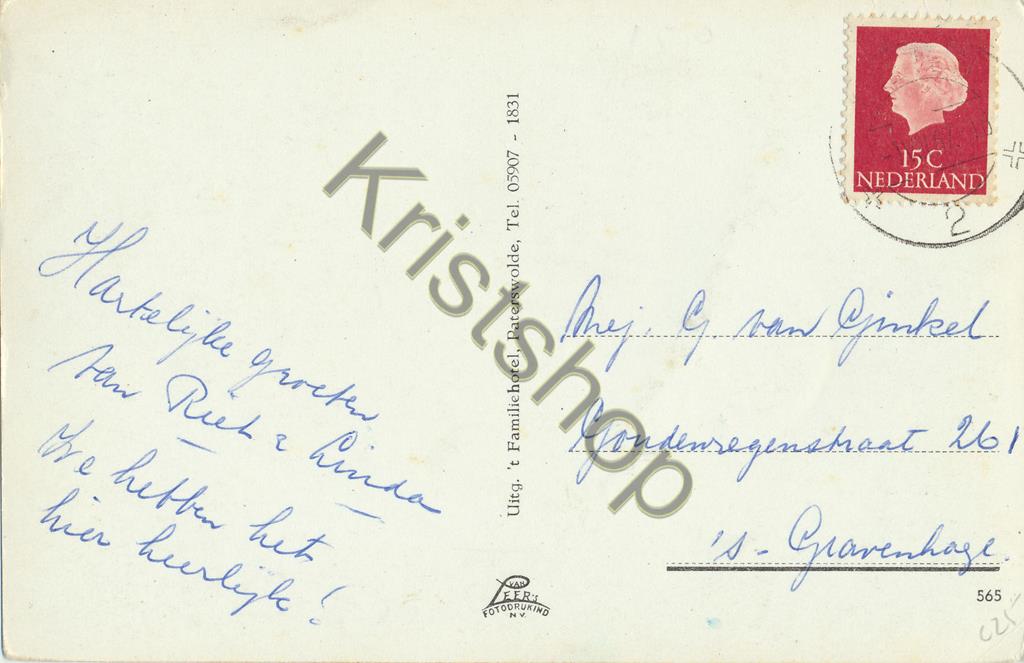 Hartelijke groeten
van Riet & Linda
We hebben het
hier heerlijk!
Uitg. 't Familiehotel, Paterswolde, Tel. 05907 - 1831
VAN
LEER'S
FOTODRUKIND
N.V.
15 C
NEDERLAND
2
Mej. G. van Ginkel
Goudenregenstraat 261
's-Gravenhage.
565
c25
Kristshop